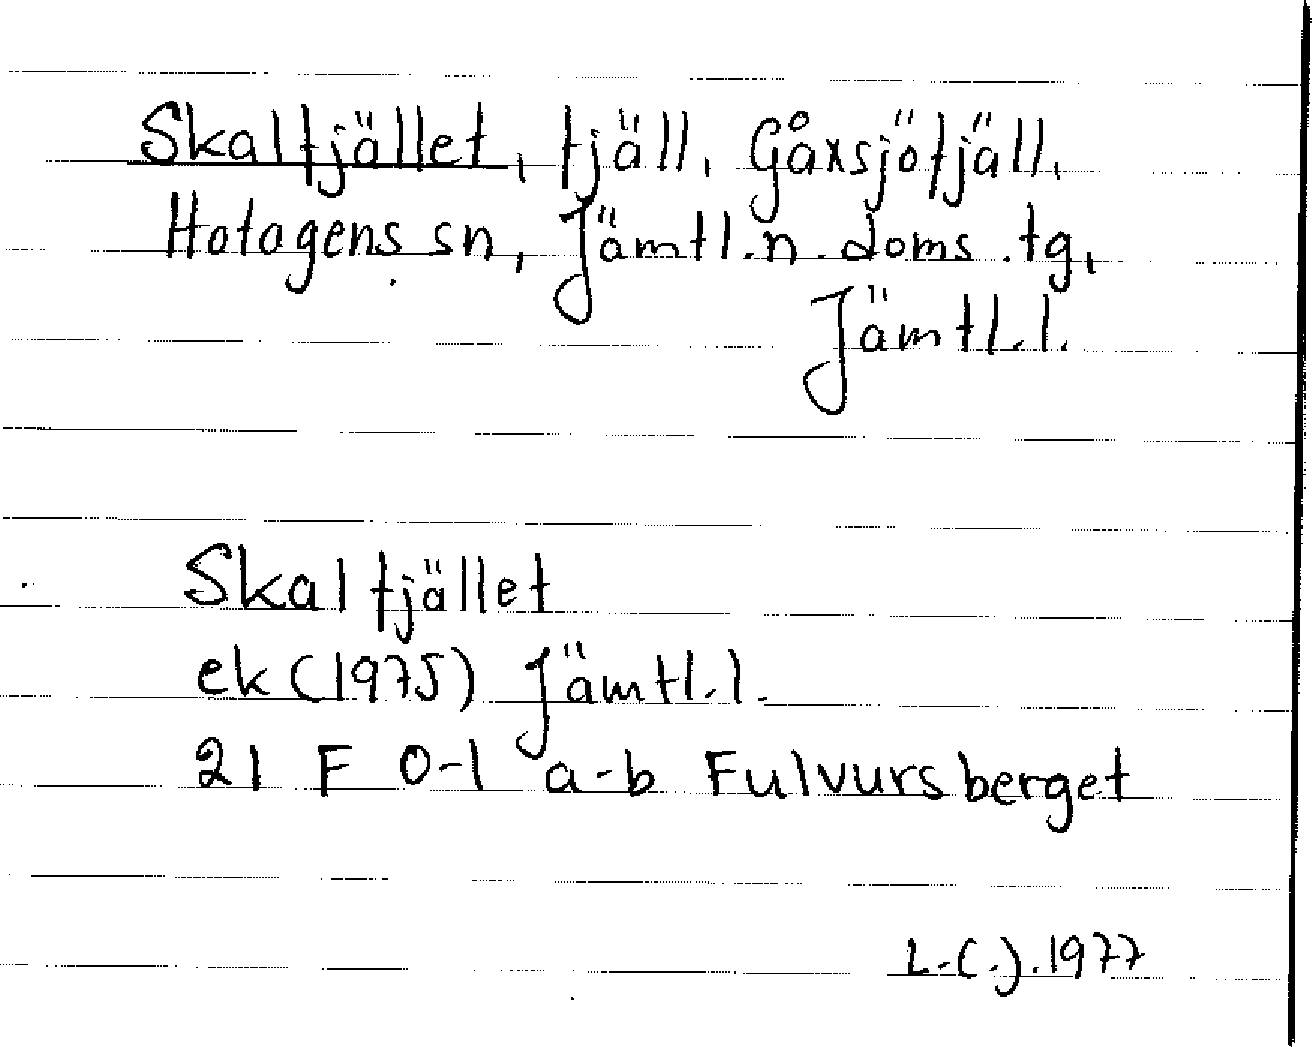 Skalfjället, fjäll, Gåxsjöfjäll,
Hotagens sn, Jämtl.n.doms.tg,
Jämtl.l.
Skalfjället
ek (1975) Jämtl.l.
21 F 0-1 a-b Fulvursberget
L.C.J. 1977